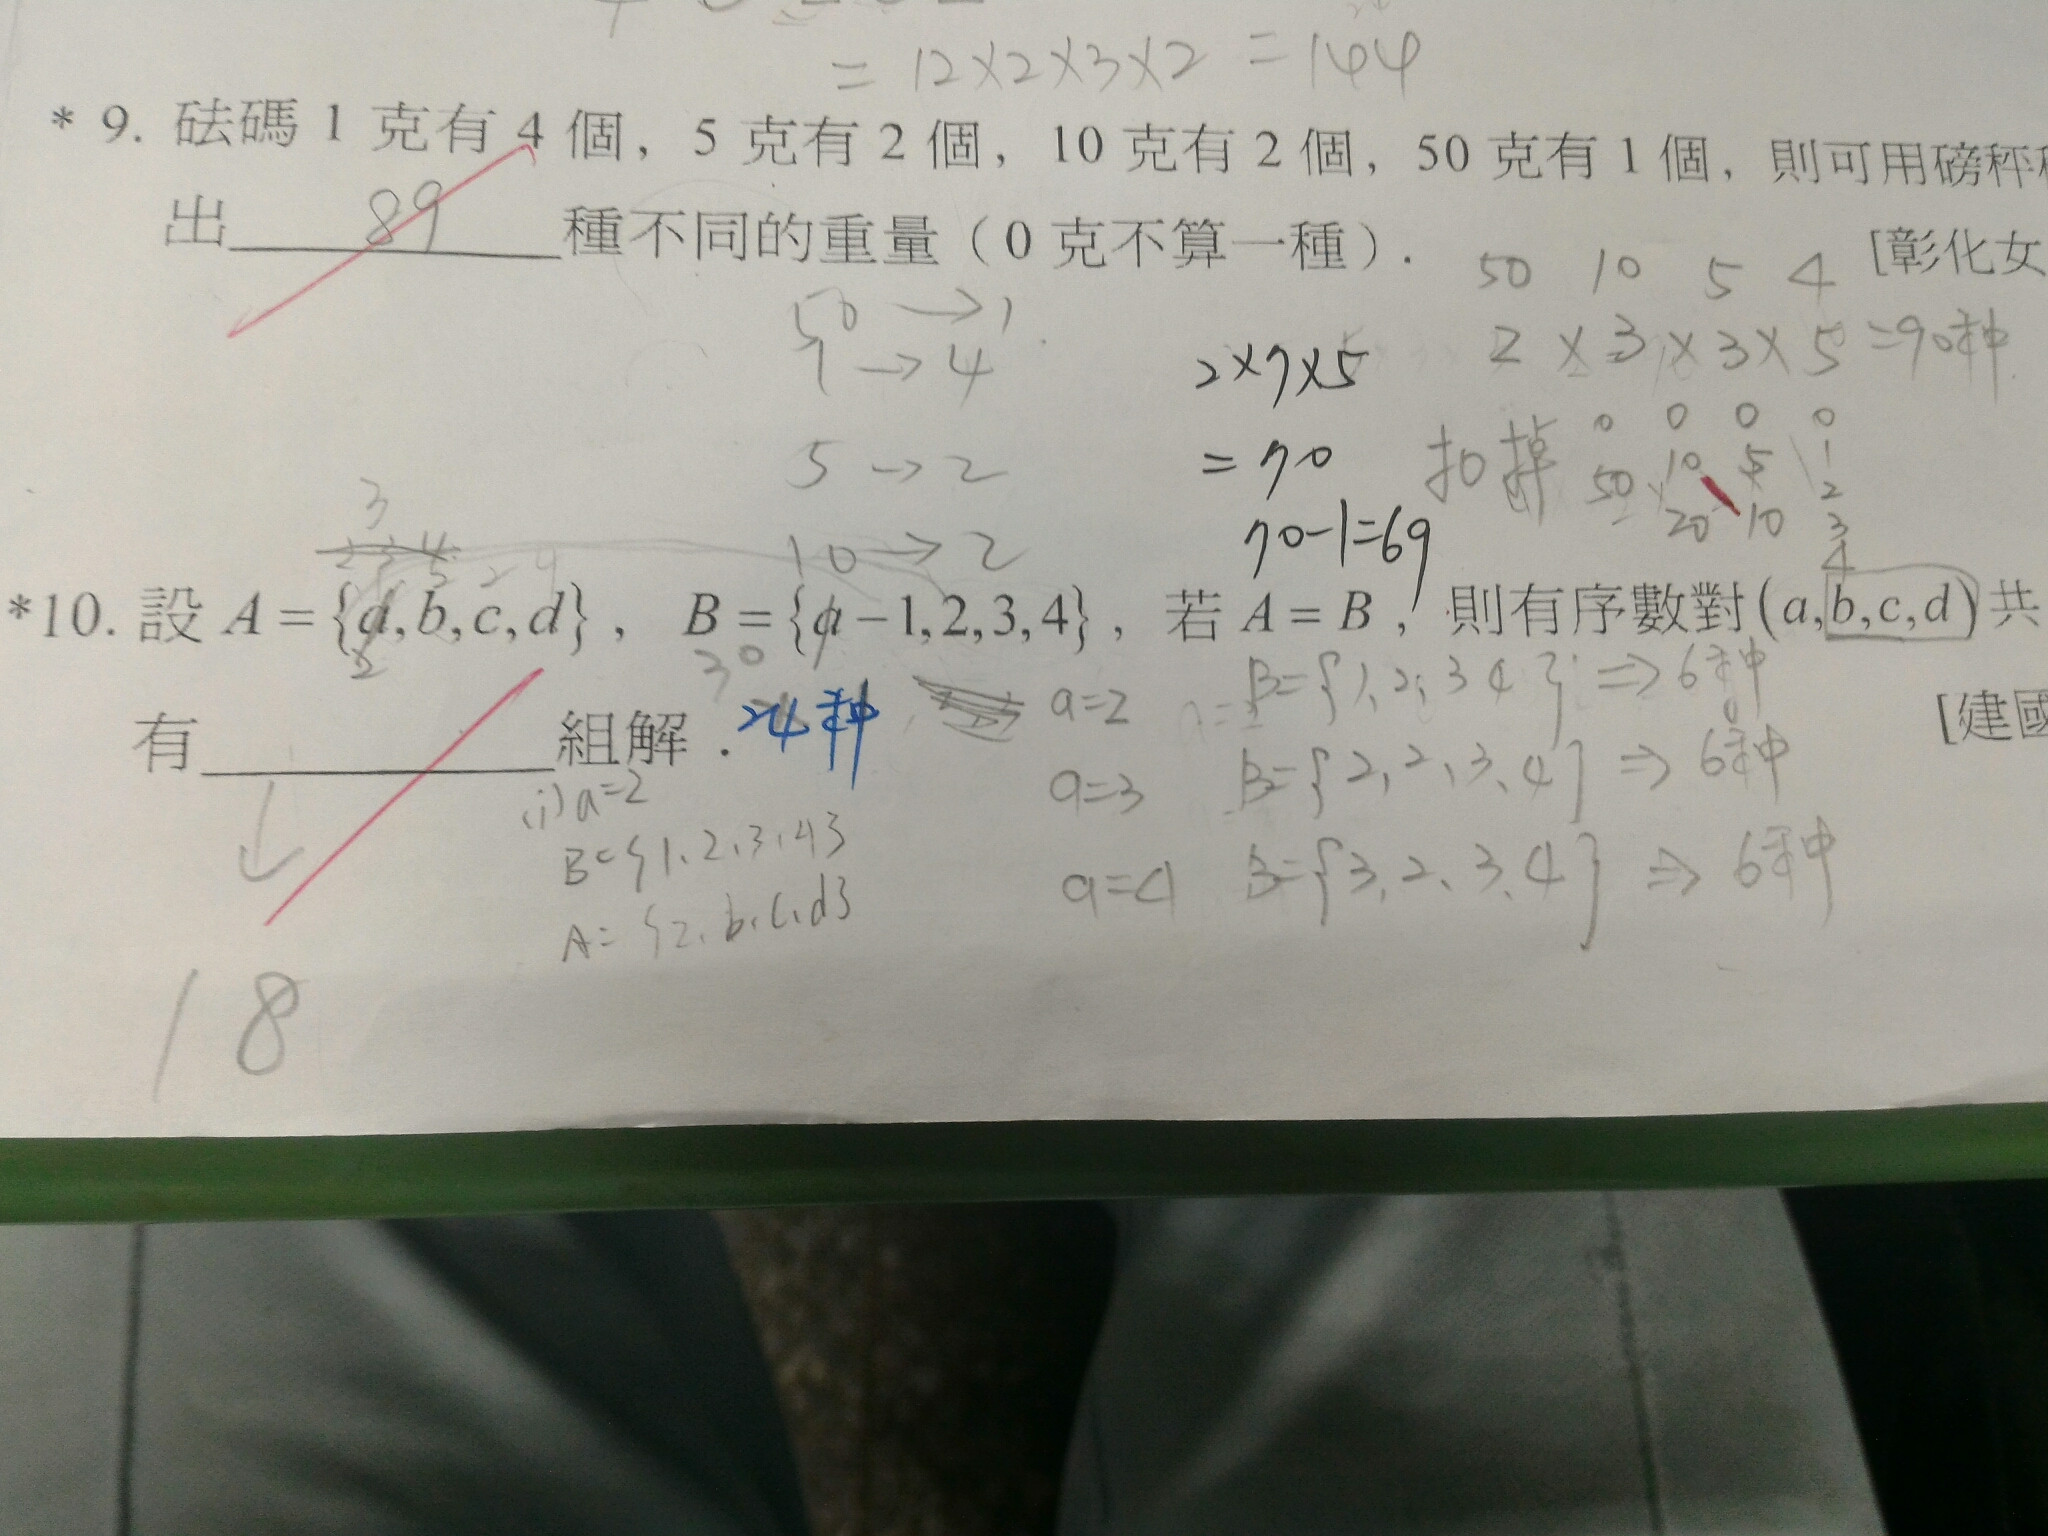 = 12×2×3×2 = 144
* 9. 砝碼 1 克有 4 個，5 克有 2 個，10 克有 2 個，50 克有 1 個，則可用磅秤
出 89 種不同的重量（0 克不算一種）. [彰化女
50 → 1
1 → 4
5 → 2
10 → 2
2×7×5
= 70
70-1=69
50 10 5 4
2 × 3 × 3 × 5 = 90种
扣掉
0 0 0 0
50 10 5 1
20 10 2
3
4
3
2 3 4
*10. 設 A = {a, b, c, d}，B = {a − 1, 2, 3, 4}，若 A = B，則有序數對 (a, b, c, d) 共
有 組解. 24种 [建國
(i) a=2
B={1,2,3,4}
A={2,b,c,d}
a=2 B={1,2,3 4} ⇒ 6种
a=3 B={2,2,3,4} ⇒ 6种
a=4 B={3,2,3,4} ⇒ 6种
18